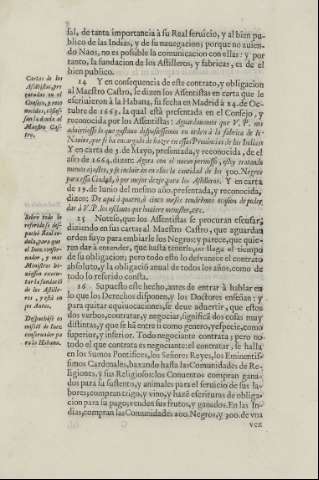 sal, de tanta importancia à su Real seruicio, y al bien pu-
blico de las Indias, y de su nauegacion; porque no auien-
do Naos, no es posible la comunicacion con ellas: y por
tanto, la fundacion de los Astilleros, y fabricas, es de el
bien publico.
Cartas de los
Assẽtistas, pre
sentadas en el
Consejo, y reco
nocidas,
Maestro Cas-
tro.
14 Y en consequencia de este contrato, y obligacion
al Maestro Castro, se dizen los Assentistas en carta que le
escriuieron à la Habana, su fecha en Madrid à 24. de Oc-
tubre de 1663. la qual està presentada en el Consejo, y
reconocida por los Assentistas: Aguardamos que V.P. nos
aduierta lo que gustare disponssemos en orden à la fabrica de
Nauios, que se ha encargado de hazer en essas Prouincias de las Indias
Y en carta de 3. de Mayo, presentada, y reconocida, de el
año de 1664. dizen: Agora con el nueuo permisso, estoy tratando
para essa Ciudad, ò por mejor dezir para los Astilleros. Y en carta
de 15. de Iunio del mesmo año, presentada, y reconocida,
dizen: De aqui à quatro, ò cinco meses tendrèmos ocasion de poder
dar à V.P. los esclauos que huuiere menester, etc.
Sobre todo lo
referido se des-
pachò Real ce-
dula, para que
el Iuez conser-
uador, y mas
Ministros hi-
ziessen execu-
tar la fundaciõ
de los Astille-
ros, y està en
los Autos.
Despachòse co
mission de Iuez
conseruador pa
ra la Habana.
15 Notese, que los Assentistas se procuran escusar,
diziendo en sus cartas al Maestro Castro, que aguardan
orden suyo para embiarle los Negros; y parece, que quie-
ren dar à entender, que hasta tenerle, no llega el tiempo
de su obligacion; pero todo esto lo desvanece el contrato
absoluto, y la obligaciõ anual de todos los años, como de
todo lo referido consta.
16 Supuesto este hecho, antes de entrar à hablar en
lo que los Derechos disponen, y los Doctores enseñan; y
para quitar equiuocaciones, se deue aduertir, que estos
dos verbos, contratar, y negociar, significã dos cosas muy
distintas, y que se hã entre si como genero, y especie, como
superior, y inferior. Todo negociante contrata; pero no
todo el que contrata es negociante: el contratar, se halla
en los Sumos Pontifices, los Señores Reyes, los Eminentis-
simos Cardenales, baxando hasta las Comunidades de Re-
ligiones, y sus Religiosos: los Conuentos compran gana-
dos para su sustento, y animales para el seruicio de sus la-
bores; compran trigo, y vino, y hazẽ escrituras de obliga-
cion para su pago; venden sus frutos, y ganados. En las In-
dias, compran las Comunidades 200. Negros, y 300. de vna
vez